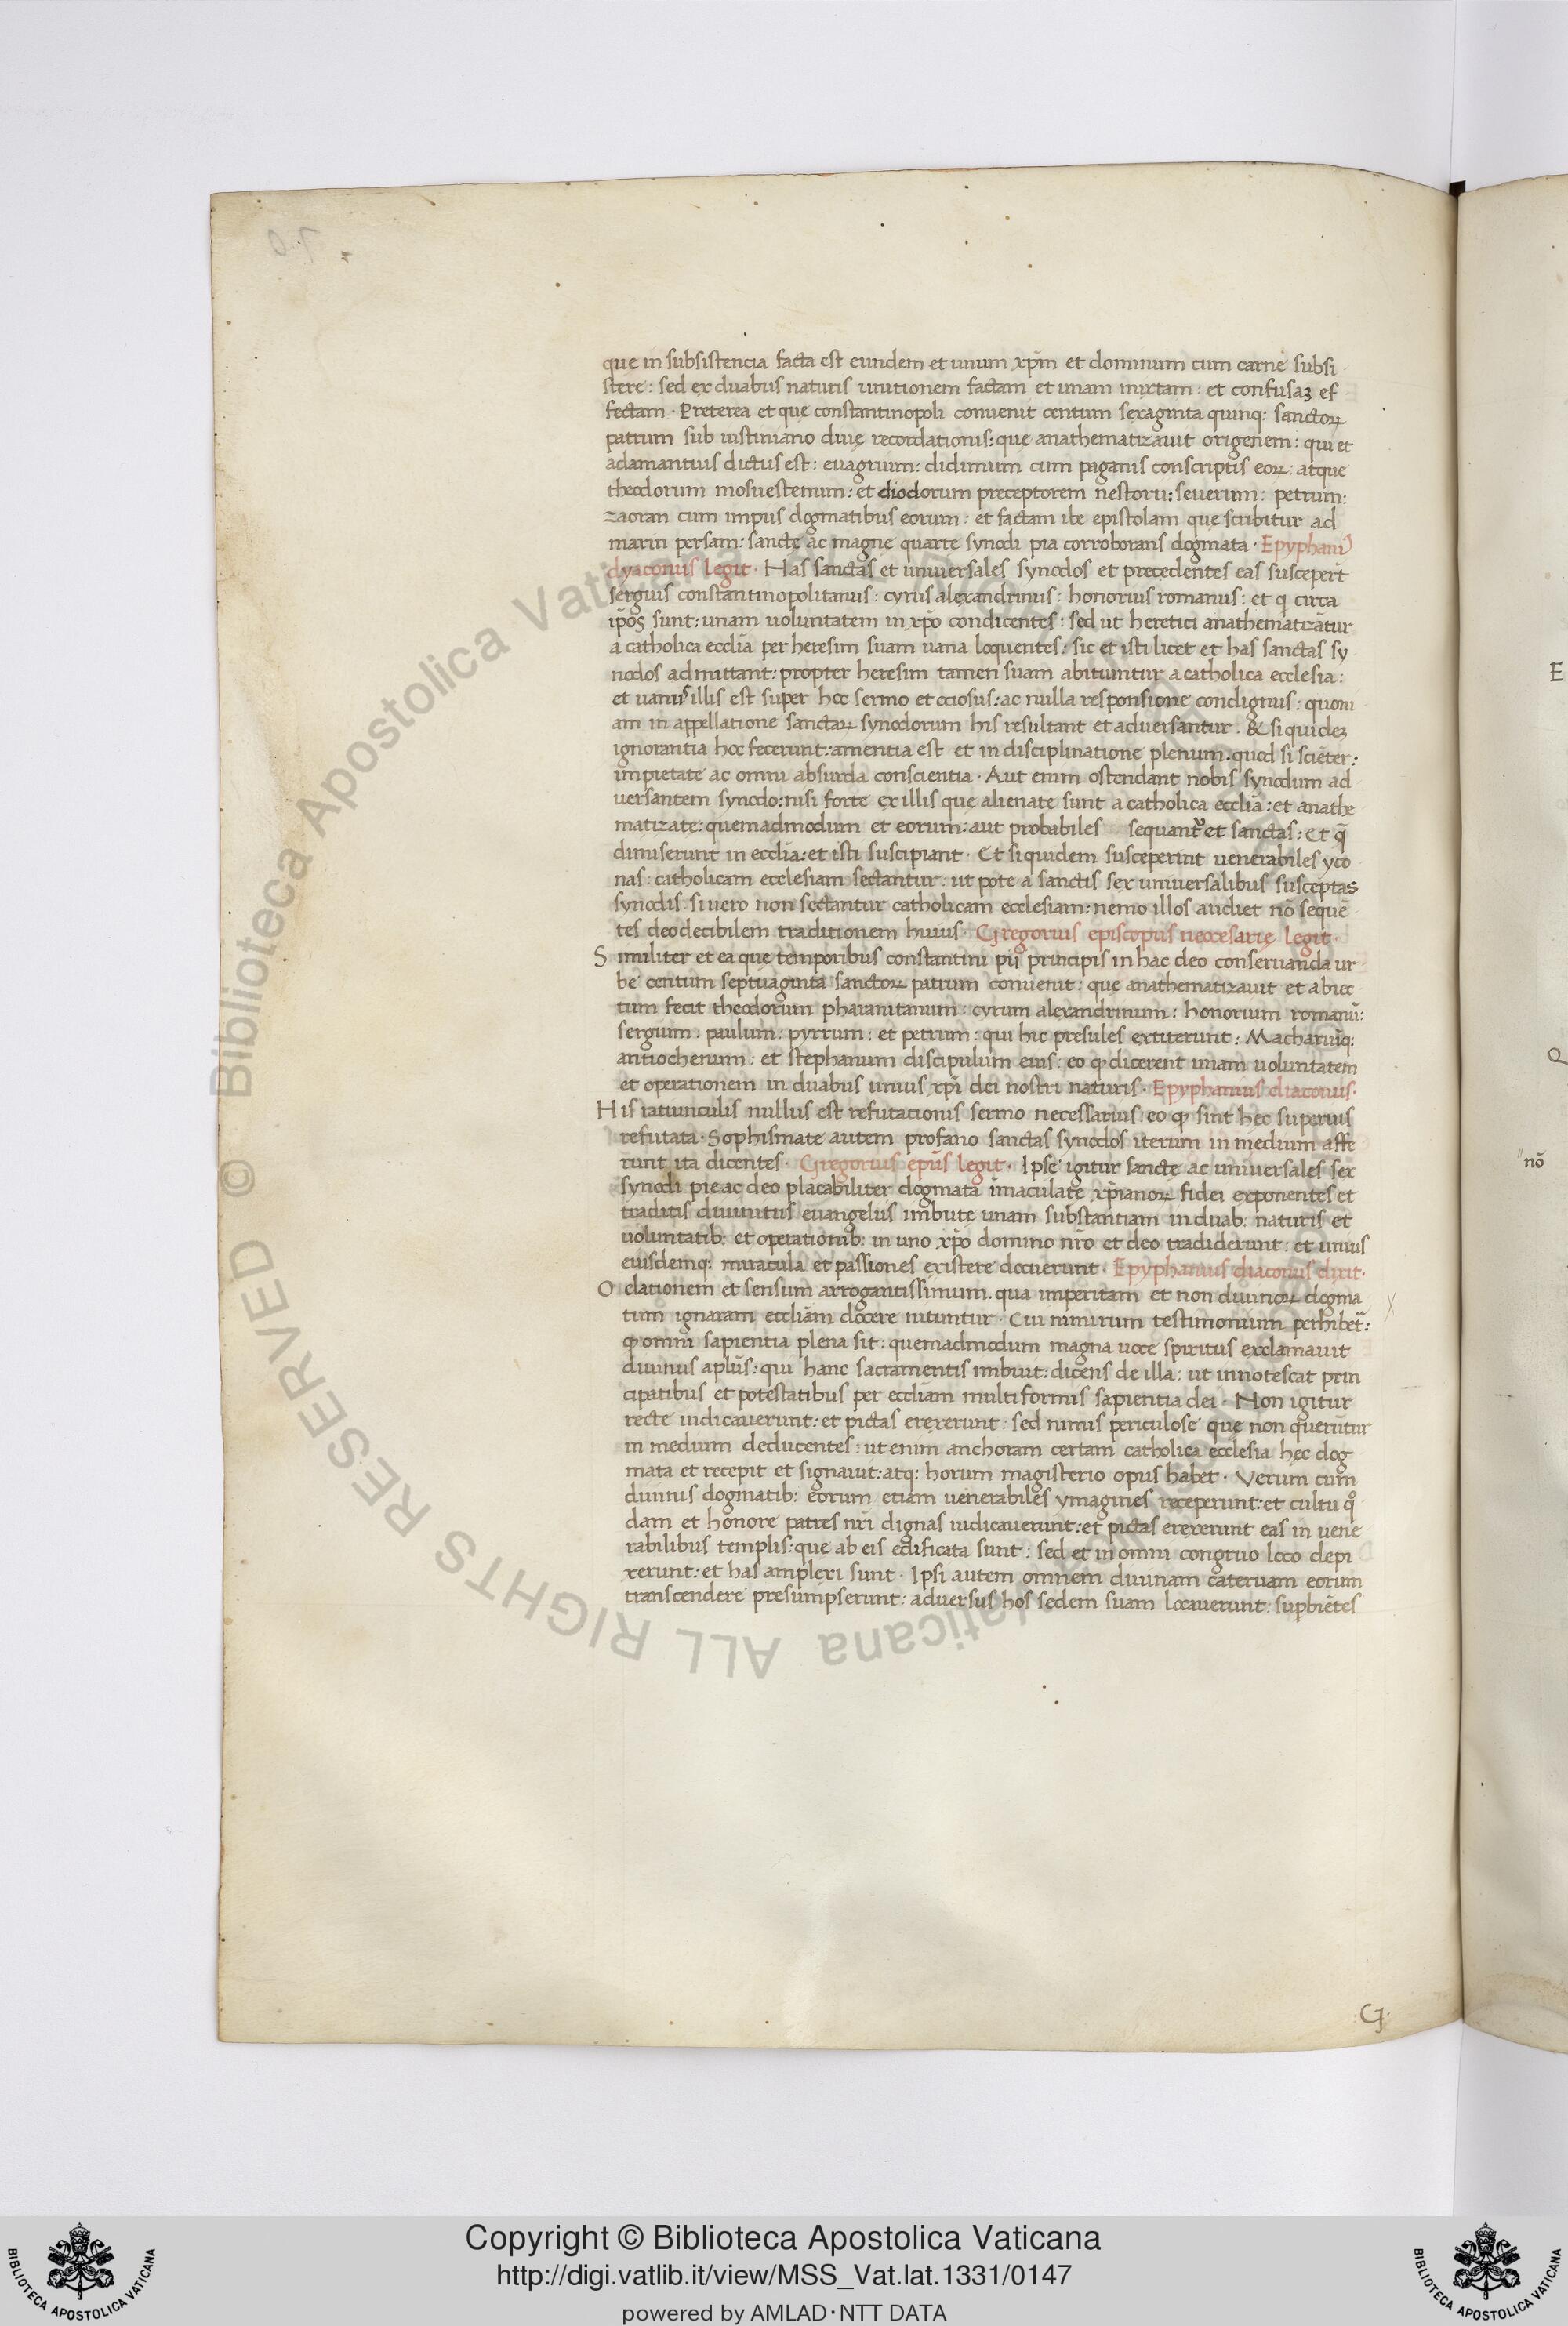 que in subsistencia facta est eundem et unum xp̄m et dominum cum carne subsi
stere : sed ex duabus naturis unitionem factam et unam mixtam : et confusaꝫ ef
fectam · Preterea et que constantinopoli convenit centum sexaginta quinq: sanctoꝝ
patrum sub iustiniano diuę recordationis : que anathematizauit origenem : qui et
adamantius dictus est : euagrium : didimum cum paganis conscriptis eoꝝ : atque
theodorum mosuestenum : et diodorum preceptorem nestorii : seuerum : petrum :
zaoran cum impiis dogmatibus eorum : et factam ibe epistolam que scribitur ad
marin persam : sancte ac magne quarte synodi pia corroborans dogmata · Epyphani⁹
dyaconus legit · Has sanctas et uniuersales synodos et precedentes eas susceper̄t
sergius constantinopolitanus : cyrus alexandrinus : honorius romanus : et q circa
ip̄os sunt : unam uoluntatem in xp̄o condicentes : sed ut heretici anathematizātur
a catholica eccl̄ia per heresim suam uana loquentes : sic et isti licet et has sanctas sy
nodos admittant : propter heresim tamen suam abiciuntur a catholica ecclesia :
et uanus illis est super hoc sermo et ociosus : ac nulla responsione condignus : quoni
am in appellatione sanctaꝝ synodorum his resultant et aduersantur . & si quideꝫ
ignorantia hoc fecerunt : amentia est et indisciplinatione plenum . quod si sciēter :
impietate ac omni absurda conscientia · Aut enim ostendant nobis synodum ad
uersantem synodo : nisi forte ex illis que alienate sunt a catholica eccl̄ia : et anathe
matizate : quemadmodum et eorum : aut probabiles sequant᷑ et sanctas : Et q̄
dimiserunt in eccl̄ia : et isti suscipiant · Et si quidem susceperint uenerabiles yco
nas : catholicam ecclesiam sectantur : ut pote a sanctis sex uniuersalibus susceptas
synodis . si uero non sectantur catholicam ecclesiam : nemo illos audiet nō sequē
tes deodecibilem traditionem huius · Gregorius episcopus neocesarię legit ·
Similiter et ea que temporibus constantini pii principis in hac deo conseruanda ur
be centum septuaginta sanctoꝝ patrum conuenit : que anathematizauit et abiec
tum fecit theodorum pharanitanum : cyrum alexandrinum : honorium romanū :
sergium . paulum : pyrrum : et petrum : qui hic presules extiterunt : Machariūq:
antiochenum : et stephanum discipulum eius : eo ꝙ dicerent unam uoluntatem
et operationem in duabus unius xp̄i dei nostri naturis · Epyphanius diaconus ·
His ratiunculis nullus est refutationis sermo necessarius : eo ꝙ sint hęc superius
refutata · Sophismate autem profano sanctas synodos iterum in medium affe
runt ita dicentes · Gregorius ep̄us legit · Ipse igitur sancte ac uniuersales sex
synodi pie ac deo placabiliter dogmata īmaculate xp̄ianoꝝ fidei exponentes et
traditis diuinitus euangeliis imbute unam substantiam in duab: naturis et
uoluntatib: et operationib: in uno xp̄o domino nr̄o et deo tradiderunt : et unius
eiusdemq: miracula et passiones existere docuerunt · Epyphanius diaconus dixit ·
O elationem et sensum arrogantissimum . qua imperitam et non diuinoꝝ dogma
tum ignaram eccl̄iam docere nituntur · Cui nimirum testimonium perhibet᷑ :
ꝙ omni sapientia plena sit : quemadmodum magna uoce spiritus exclamauit
diuinus apl̄us : qui hanc sacramentis imbuit : dicens de illa : ut innotescat prin
cipatibus et potestatibus per eccl̄iam multiformis sapientia dei · Non igitur
recte iudicauerunt : et pictas erexerunt : sed nimis periculose que non querūtur
in medium deducentes : ut enim anchoram certam catholica ecclesia hec dog
mata et recepit et signauit : atq: horum magisterio opus habet · Verum cum
diuinis dogmatib: eorum etiam uenerabiles ymagines receperunt : et cultu qͦ
dam et honore patres nr̄i dignas iudicauerunt : et pictas erexerunt eas in uene
rabilibus templis : que ab eis edificata sunt : sed et in omni congruo loco depi
xerunt : et has amplexi sunt · Ipsi autem omnem diuinam cateruam eorum
transcendere presumpserunt : aduersus hos sedem suam locauerunt : supbiētes
G
E
nō
© Biblioteca Apostolica Vaticana
ALL RIGHTS RESERVED
Copyright © Biblioteca Apostolica Vaticana
http://digi.vatlib.it/view/MSS_Vat.lat.1331/0147
powered by AMLAD·NTT DATA
BIBLIOTECA APOSTOLICA VATICANA
BIBLIOTECA APOSTOLICA VATICANA